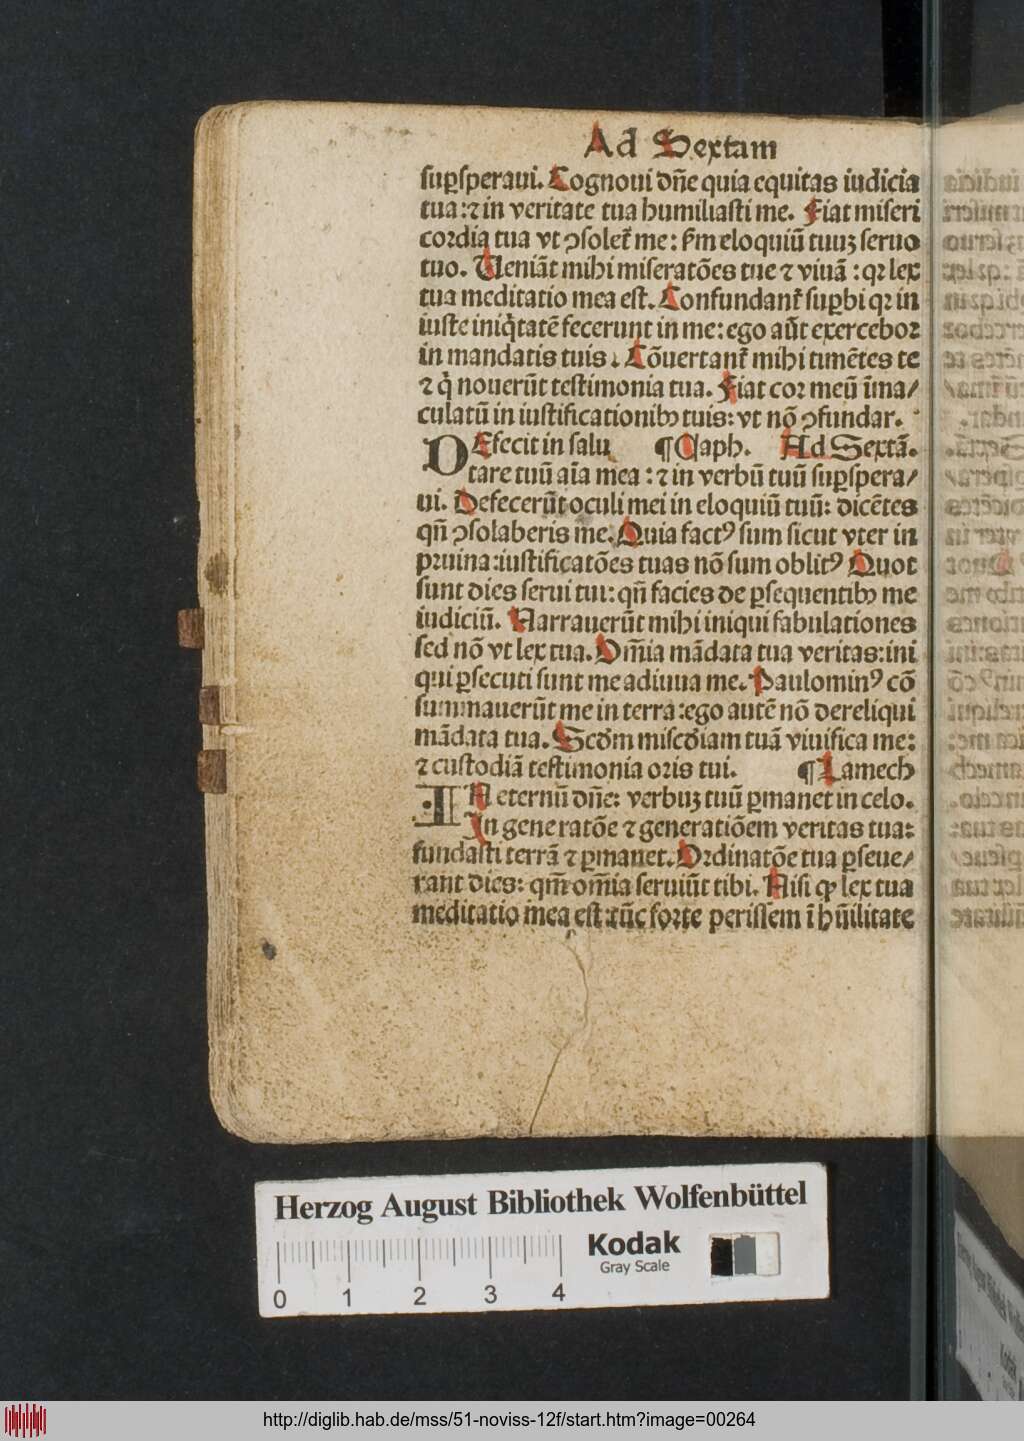 Ad Sextam
suꝑsperaui. Cognoui dn̄e quia equitas iudicia
tua: ⁊ in veritate tua humiliasti me. Fiat miseri
cordia tua vt ↄsolet᷑ me: ẜm eloquiū tuuꝫ seruo
tuo. Ueniāt mihi miseratōes tue ⁊ viuā: qꝛ lex
tua meditatio mea est. Confundant᷑ suꝑbi qꝛ in
iuste iniq̇tatē fecerunt in me: ego aūt exercebor
in mandatis tuis. Cōuertant᷑ mihi timētes te
⁊ q̇ nouerūt testimonia tua. Fiat cor meū īma/
culatū in iustificationibꝰ tuis: vt nō ↄfundar.
DEfecit in salu ¶Caph. Ad Sextā.
tare tuū aīa mea: ⁊ in verbū tuū suꝑspera/
ui. Defecerūt oculi mei in eloquiū tuū: dicētes
qn̄ ↄsolaberis me. Quia factꝰ sum sicut vter in
pruina: iustificatōes tuas nō sum oblitꝰ Quot
sunt dies serui tui: qn̄ facies de ꝑsequentibꝰ me
iudiciū. Narrauerūt mihi iniqui fabulationes
sed nō vt lex tua. Om̄ia mādata tua veritas: ini
qui ꝑsecuti sunt me adiuua me. Paulominꝰ cō
summauerūt me in terra: ego autē nō dereliqui
mādata tua. Scd̄m misc̄diam tuā viuifica me:
⁊ custodiā testimonia oris tui. ¶Lamech
IN eternū dn̄e: verbuꝫ tuū ꝑmanet in celo.
In generatōe ⁊ generatiōem veritas tua:
fundasti terrā ⁊ ꝑmanet. Ordinatōe tua ꝑseue/
rant dies: qm̄ om̄ia seruiūt tibi. Nisi ꝙ lex tua
meditatio mea est: tūc forte perissem ī hūilitate
Herzog August Bibliothek Wolfenbüttel
Kodak
Gray Scale
0 1 2 3 4
http://diglib.hab.de/mss/51-noviss-12f/start.htm?image=00264